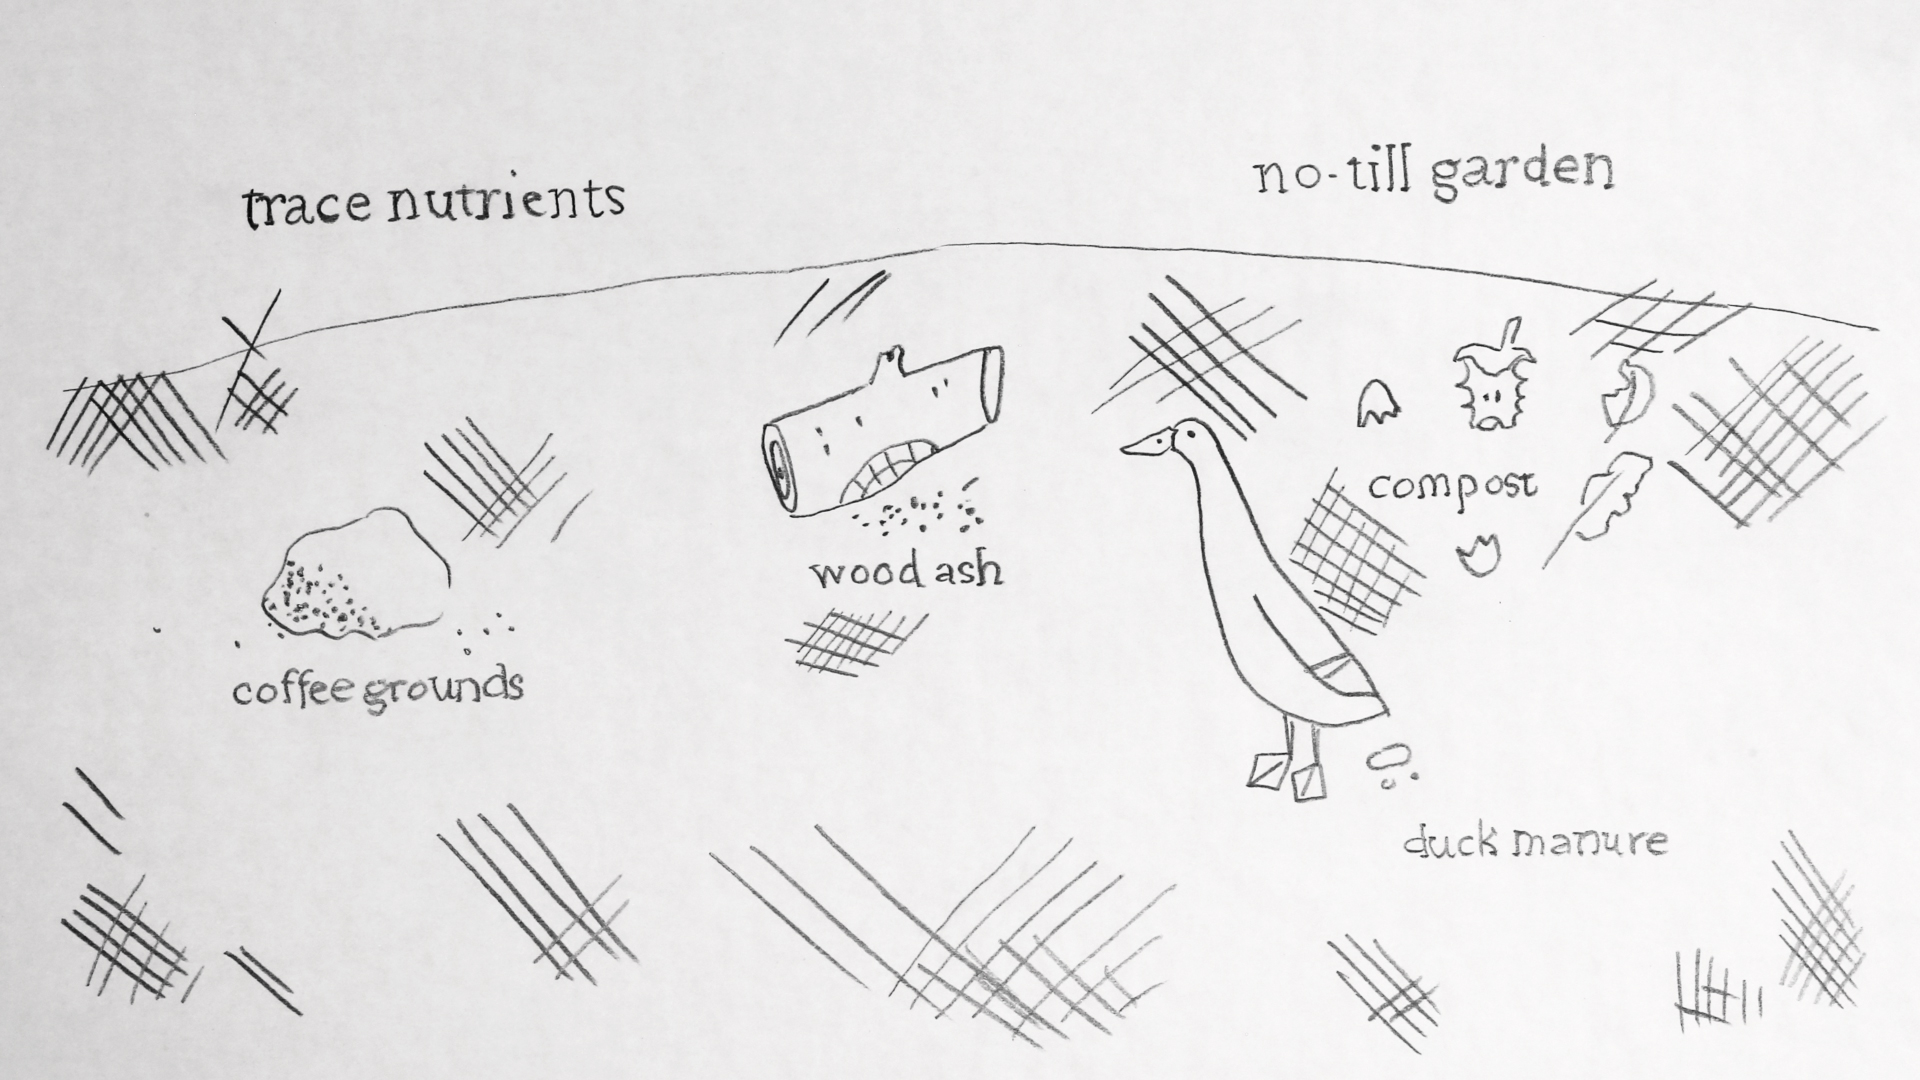 trace nutrients
no-till garden
compost
wood ash
coffee grounds
duck manure